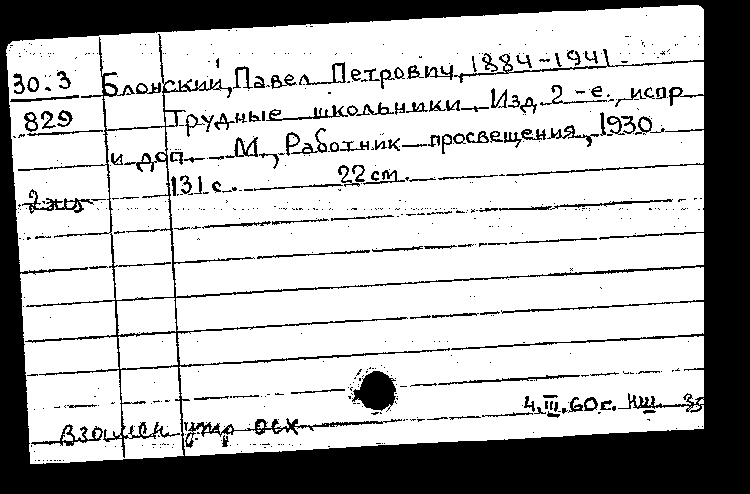 30.3 Блонский, Павел Петрович, 1884-1941.
829 Трудные школьники. Изд. 2-е., испр
и доп. М., Работник просвещения, 1930.
131 с. 22 cm.
2 экз
4.III.60г. НШ
Взамен утр осх